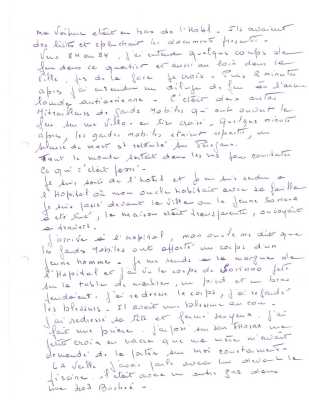 ma voiture était en bas de l'Hôtel. Ils avaient
des listes et épluchaient les documents
Vers 8H ou 9H, j'ai entendu quelques coups de
feu dans ce quartier et aussi au loin dans la
ville, pas de la foire je crois. Puis 2 minutes
après j'ai entendu un déluge de feu à l'arme
lourde autrichienne. C'était deux autos
Mitrailleuses de Garde Mobiles qui ont ouvert le
feu sur une villa en feu croisé. Quelques minutes
après, les gardes mobiles étaient repartis, un
silence de mort est retombé sur
Tout le monde sortait dans les rues pour connaître
ce qui s'était passé.
Je suis sorti de l'hôtel et je me suis rendu à
l'Hôpital où mon oncle habitait avec sa famille
Je suis passé devant la villa où le jeune
a été tué, la maison était transparente, on voyait
à travers.
J'arrive à l'hôpital, mon oncle me dit que
les gardes mobiles ont apporté un corps d'un
jeune homme. Je me rends à la morgue de
l'Hôpital et j'ai vu le corps de jeté
sur la table de marbre, un pied et un bras
pendaient. J'ai redressé le corps, j'ai regardé
les blessures. Il avait une blessure au cou.
J'ai redressé sa tête et fermé ses yeux. J'ai
fait une prière. J'ai posé sur son thorax une
petite croix en nacre que ma mère m'avait
demandé de la porter sur moi constamment.
La veille j'avais parlé avec lui devant la
piscine. Il était avec un autre gars dans
une 203 Bâchée.